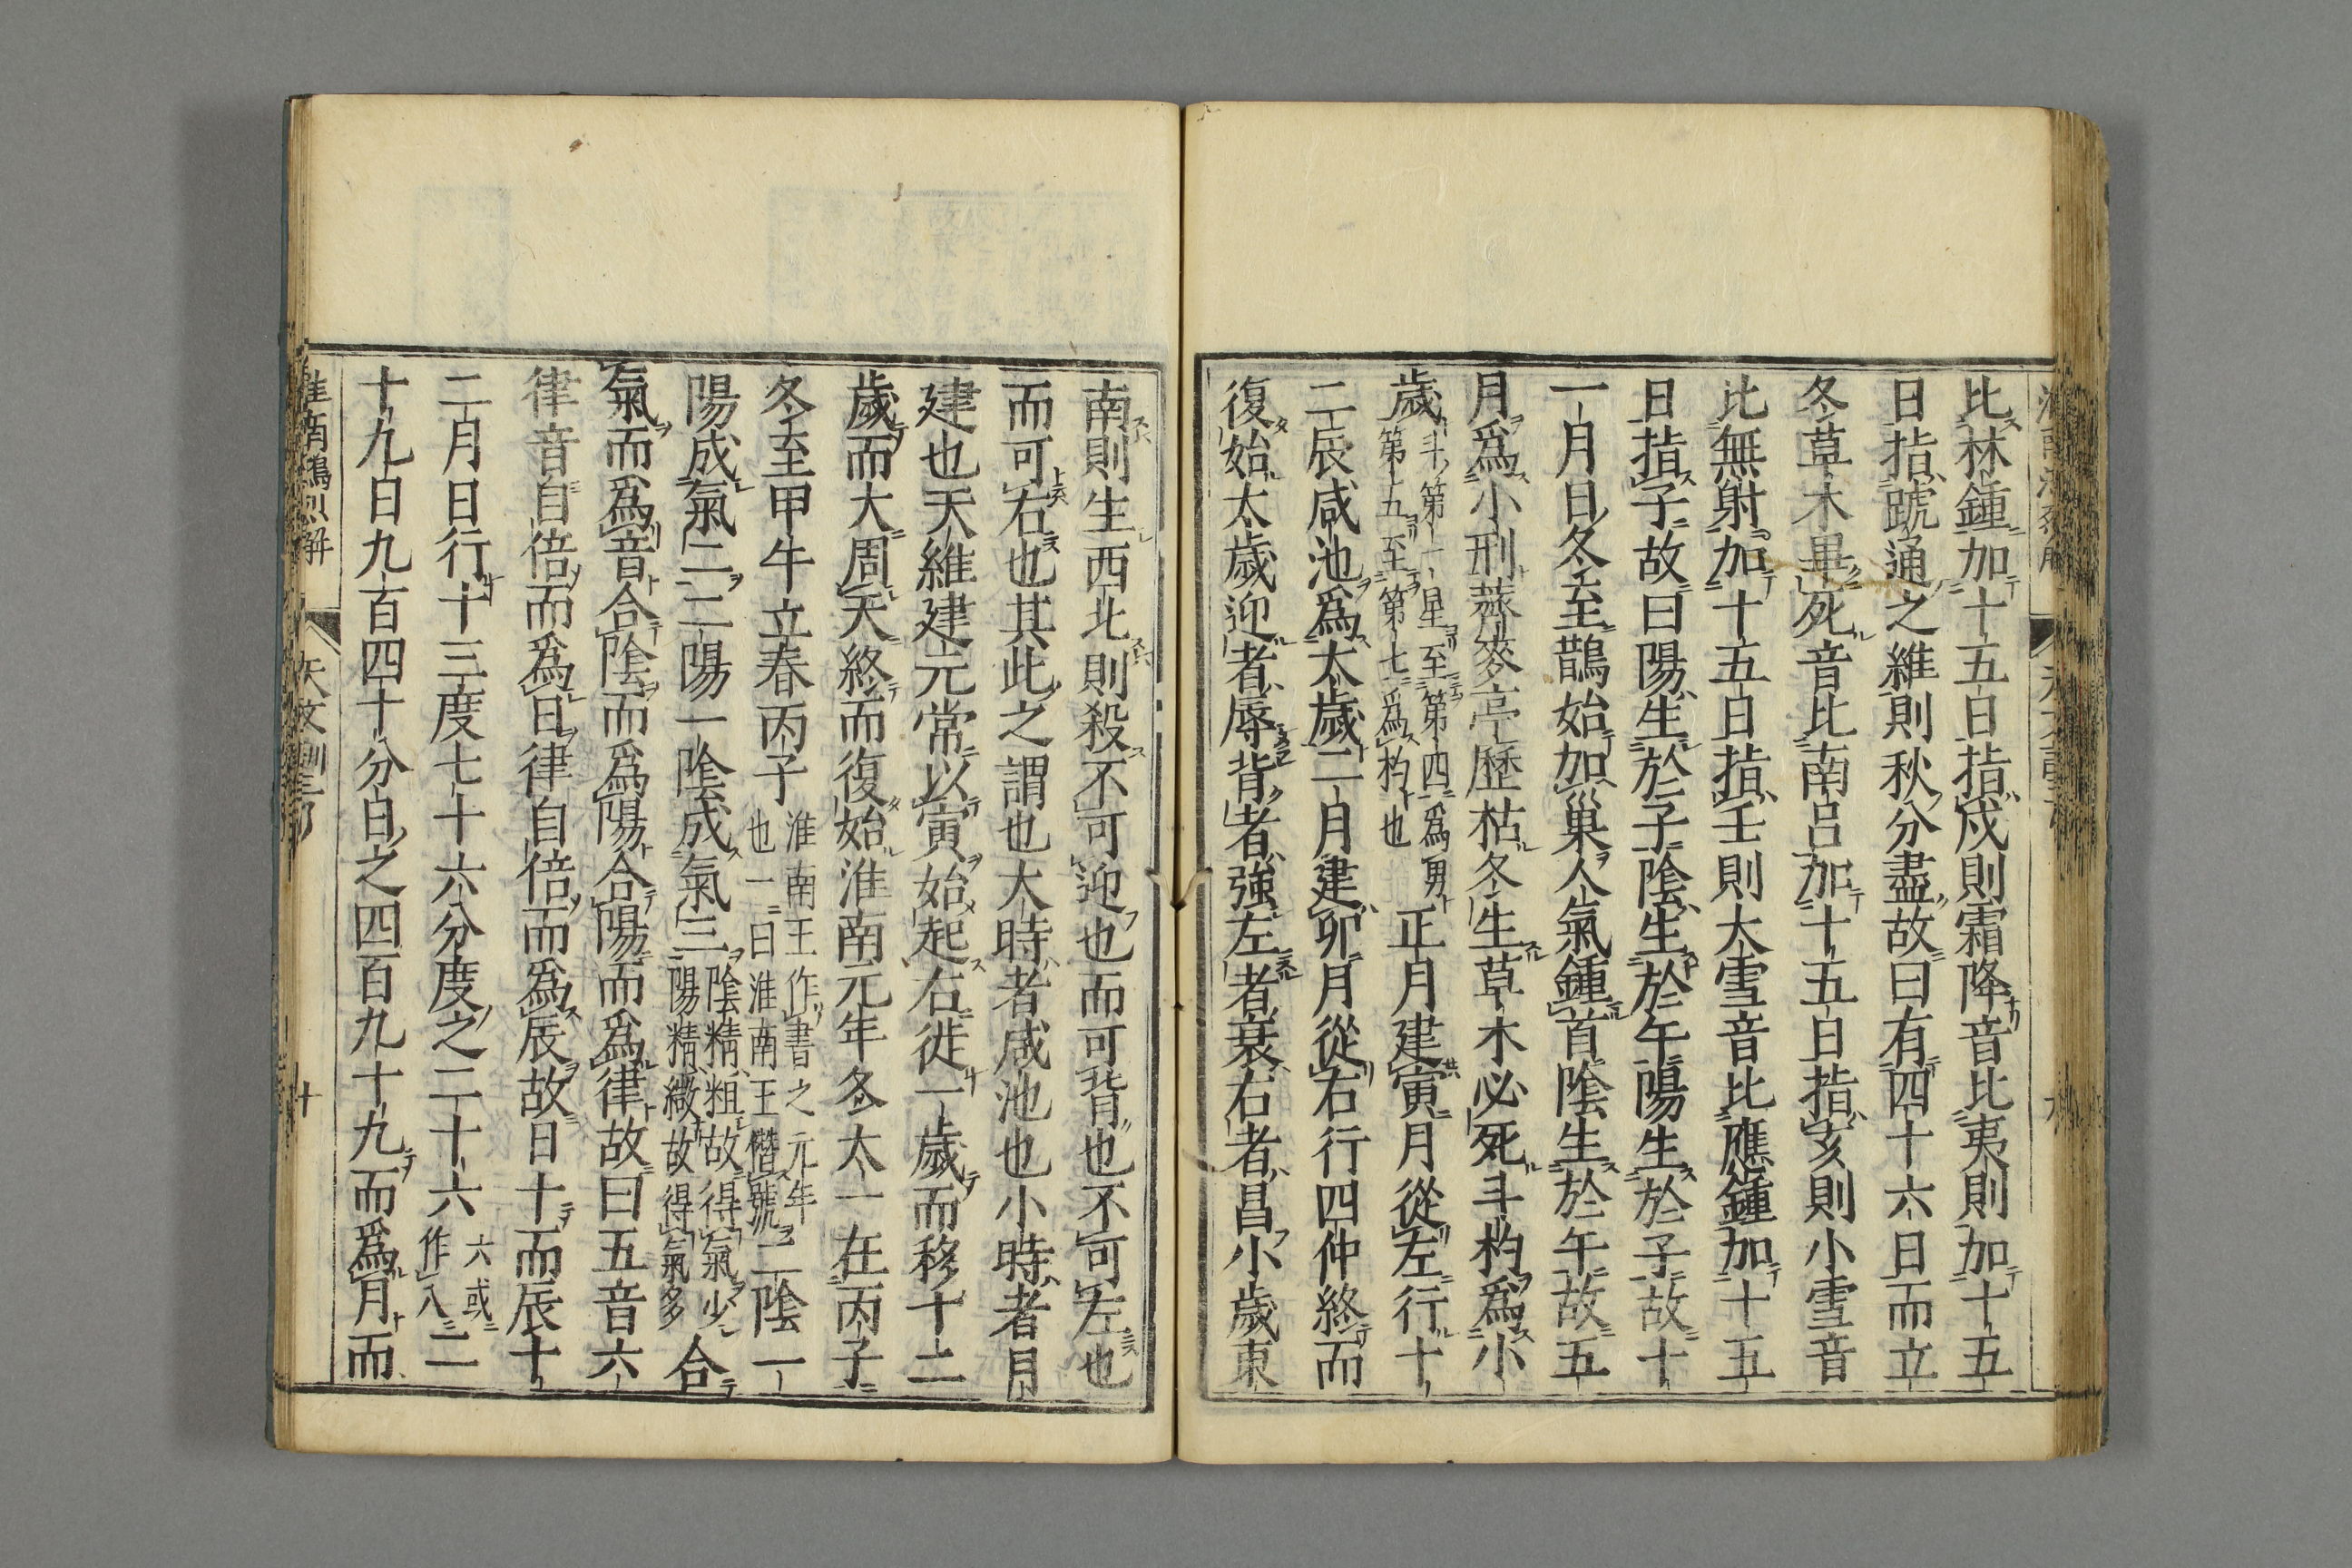 比林鍾加十五日指戌則霜降音比夷則加十五
日指蹏通之維則秋分盡故曰有四十六日而立
冬草木畢死音比南呂加十五日指亥則小雪音
比無射加十五日指壬則大雪音比應鍾加十五
日指子故曰陽生於子陰生於午陽生於子故十
一月日冬至鵲始加巢人氣鍾首陰生於午故五
月爲小刑薺麥亭歷枯冬生草木必死斗杓爲小
歲斗第一星至第四爲魁第五至第七爲杓也正月建寅月從左行十
二辰咸池爲太歲二月建卯月從右行四仲終而
復始太歲迎者辱背者強左者衰右者昌小歲東
南則生西北則殺不可迎也而可背也不可左也
而可右也其此之謂也大時者咸池也小時者月
建也天維建元常以寅始起右徙一歲而移十二
歲而大周天終而復始淮南元年冬太一在丙子
冬至甲午立春丙子淮南王作書之元年也一曰淮南王僭號二陰一
陽成氣二二陽一陰成氣三陰精粗故得氣少陽精緻故得氣多合
氣而爲音合陰而爲陽合陽而爲律故曰五音六
律音自倍而爲日律自倍而爲辰故日十而辰十
二月日行十三度七十六分度之二十六六或作八二
十九日九百四十分日之四百九十九而爲月而
淮南鴻烈解
天文訓三
十